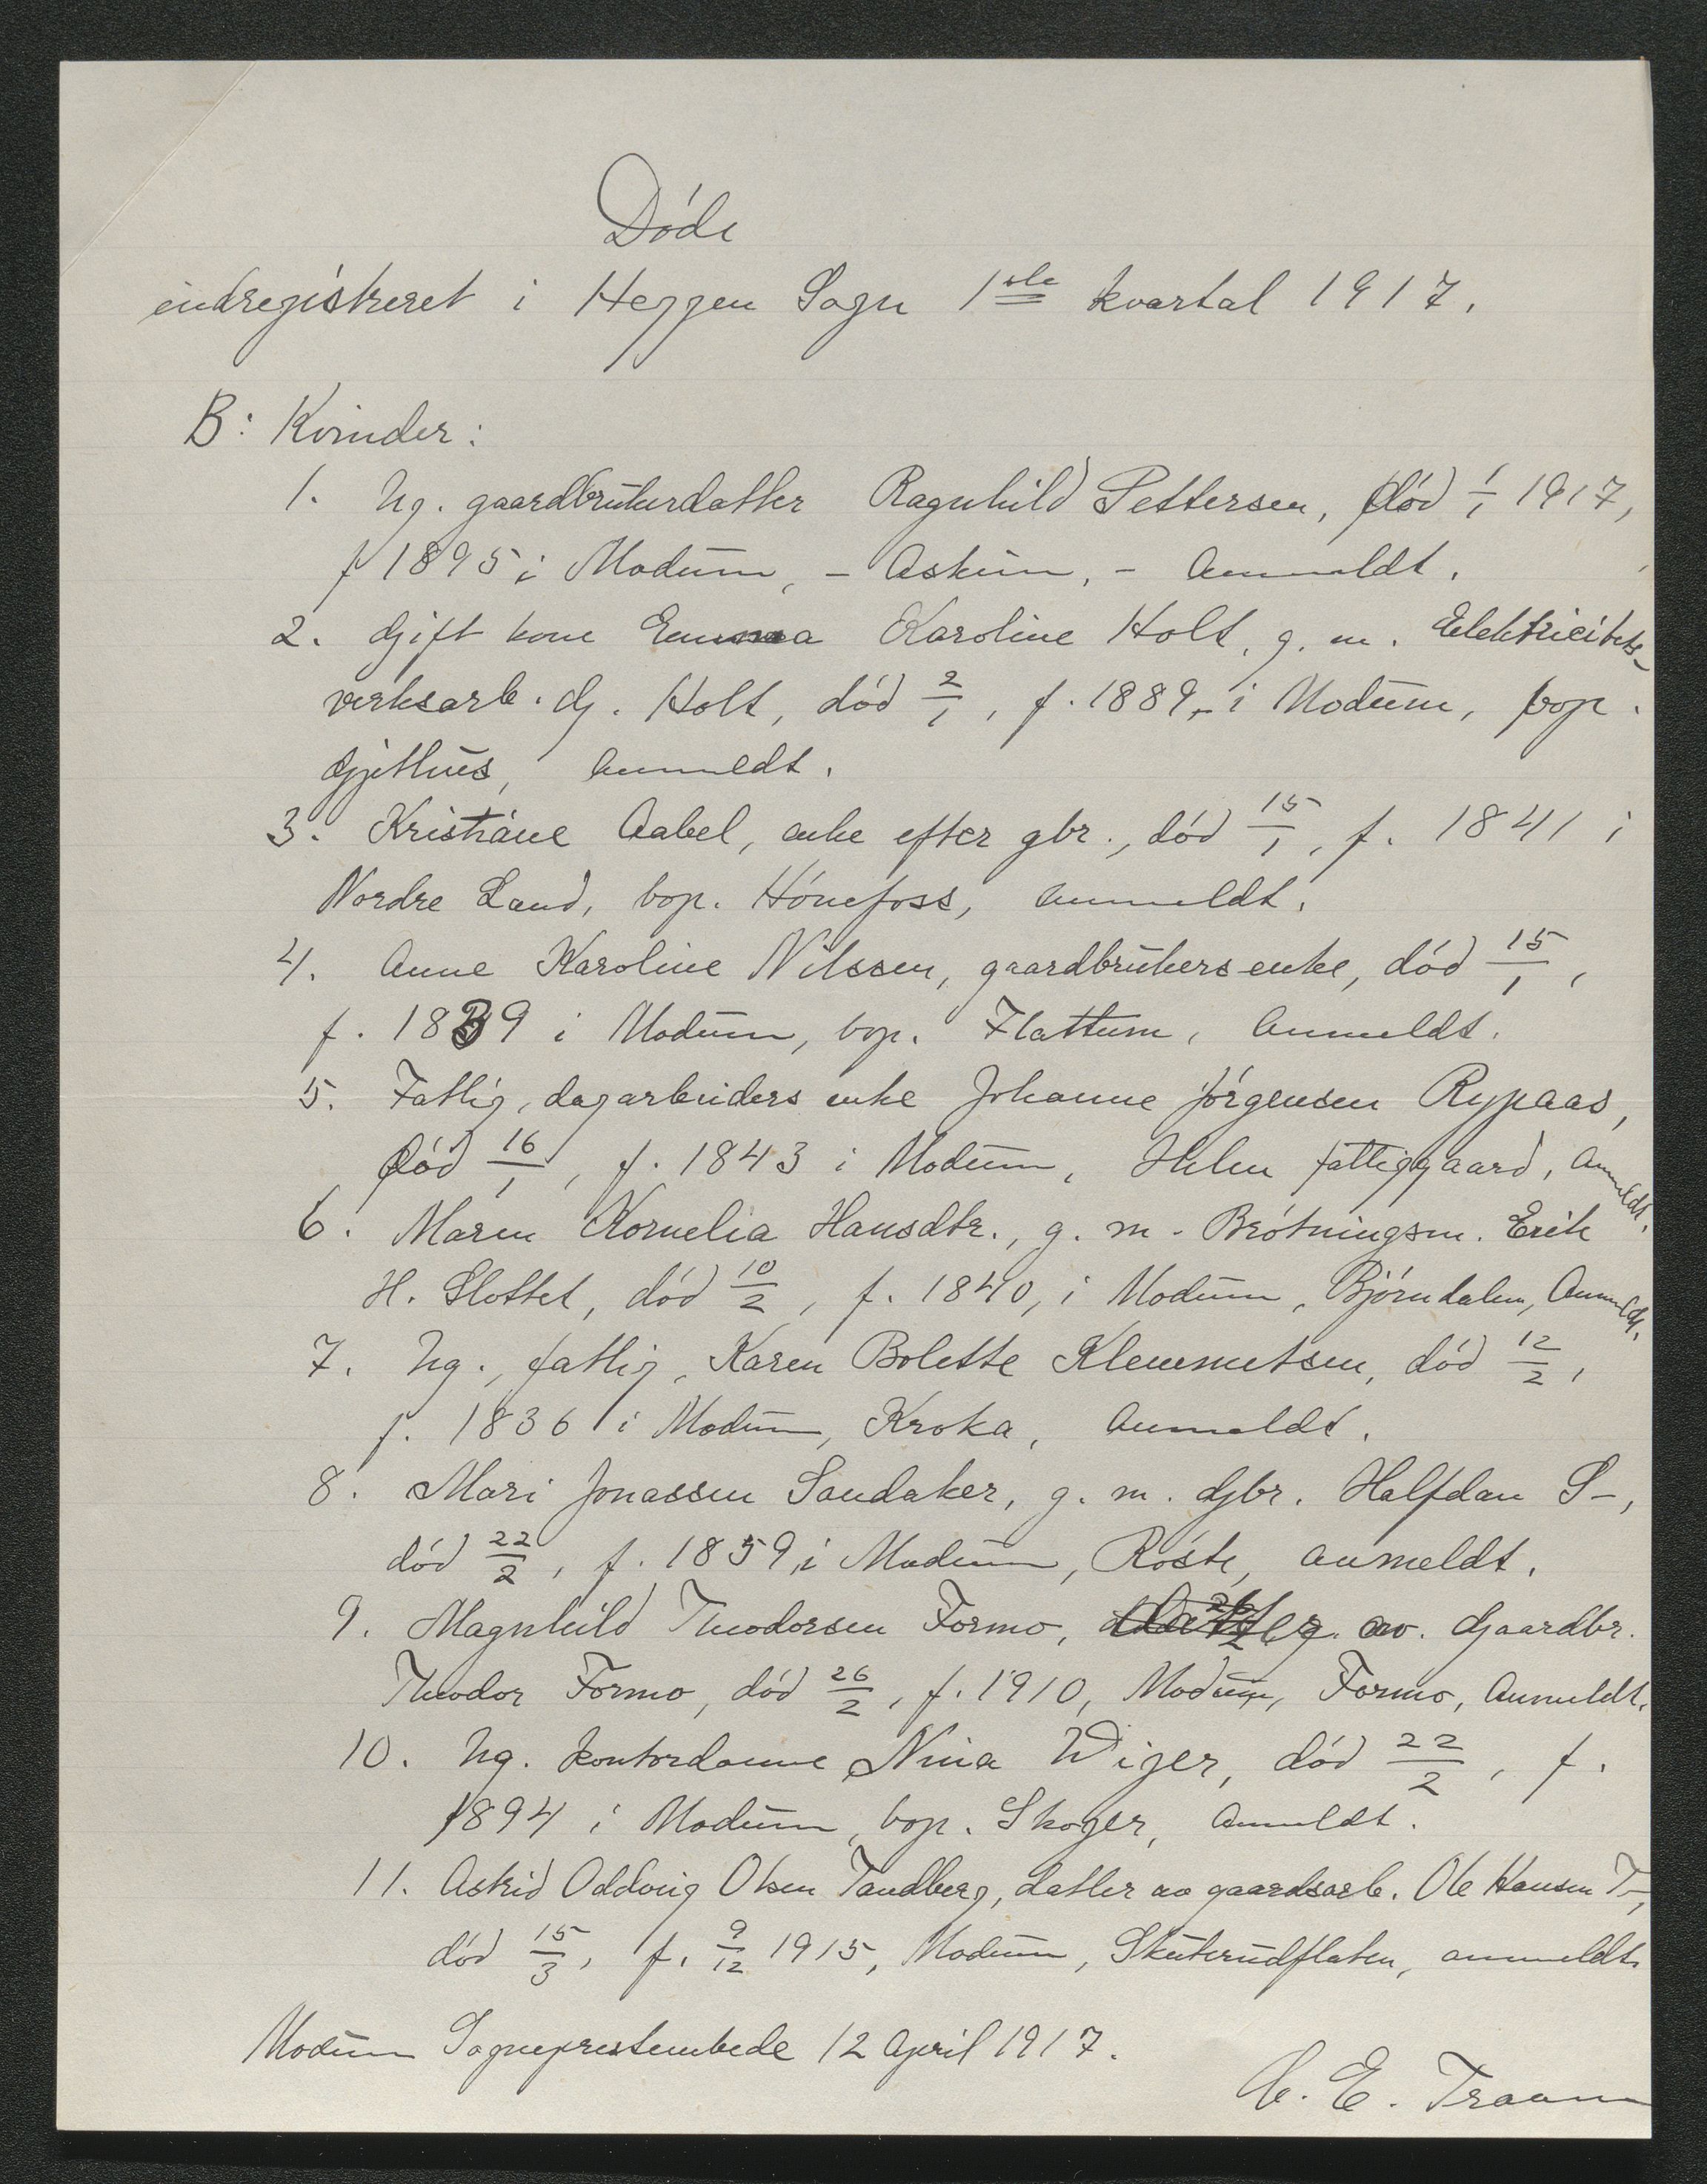 Døde
indregistreret i Heggen Sogn 1ste kvartal 1917.
B: Kvinder:
1. Ug. gaardbrukerdatter Ragnhild Pettersen, død 1/1 1917,
f 1895 i Modum, - Askim, - Anmeldt.
2. Gift kone Emma Karoline Holt, g. m. Elektricitets-
verksarb. G. Holt, død 2/1, f. 1889, i Modum, bop.
Gjethus, Anmeldt.
3. Kristiane Aabel, enke efter gbr., død 15/1, f. 1841 i
Nordre Land, bop. Hønefoss, Anmeldt.
4. Anne Karoline Nilssen, gaardbrukers enke, død 15/1,
f. 1839 i Modum, bop. Flattum, Anmeldt.
5. Fattig, dagarbeiders enke Johanne Jørgensen Rypaas,
død 16/1, f. 1843 i Modum, fattiggaard, Anmeldt.
6. Maren Kornelia Hansdtr., g. m. Brøtningsm. Erik
H. Slottet, død 10/2, f. 1840, i Modum, Bjørndalen, Anmeldt.
7. Ug., fattig, Karen Bolette Klemmetsen, død 12/2,
f. 1836 i Modum, Kroka, Anmeldt.
8. Mari Jonassen Sandaker, g. m. Gbr. Halfdan S-,
død 22/2, f. 1859, i Modum, Røste, anmeldt.
9. Magnhild Theodorsen Formo, av. Gaardbr.
Theodor Formo, død 26/2, f. 1910, Modum, Formo, Anmeldt.
10. Ug. kontordame Nina Wiger, død 22/2, f.
1894 i Modum, bop. Skoger, Anmeldt.
11. Astrid Oddvig Olsen Tandberg, datter av gaardsarb. Ole Hansen T-,
død 15/3, f. 9/12 1915, Modum, Skuterudflaten, anmeldt.
Modum Sogneprestembede 12 April 1917.
C. E. Traam